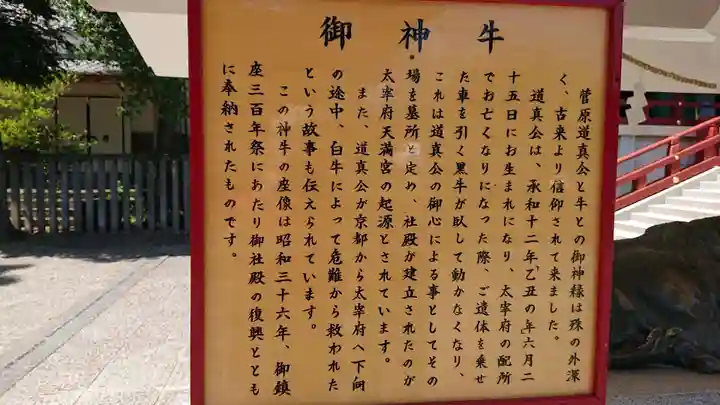 御神牛
菅原道真公と牛との御神縁は殊の外深
く、古来より信仰されて来ました。
道真公は、承和十二年(乙丑の年)六月二
十五日にお生まれになり、太宰府の配所
でお亡くなりになった際、ご遺体を乗せ
た車を引く黒牛が臥して動かなくなり、
これは道真公の御心による事としてその
場を墓所と定め、社殿が建立されたのが
太宰府天満宮の起源とされています。
また、道真公が京都から太宰府へ下向
の途中、白牛によって危難から救われた
という故事も伝えられています。
この神牛の座像は昭和三十六年、御鎮
座三百年祭にあたり御社殿の復興ととも
に奉納されたものです。